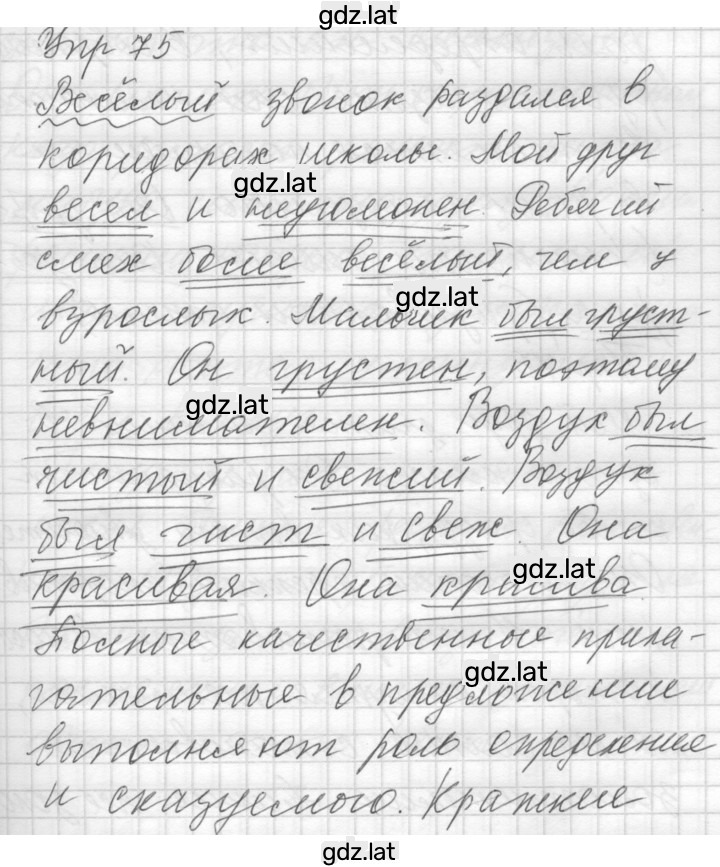 gdz.lat
Упр 75
Весёлый звонок раздался в
коридорах школы. Мой друг
gdz.lat
весел и неугомонен. Ребячий
смех более весёлый, чем у
gdz.lat
взрослых. Мальчик был груст-
ный. Он грустен, поэтому
gdz.lat
невнимателен. Воздух был
чистый и свежий. Воздух
был чист и свеж. Она
gdz.lat
красивая. Она красива.
Полные качественные прила-
gdz.lat
гательные в предложении
выполняют роль определения
и сказуемого. Краткие
gdz.lat